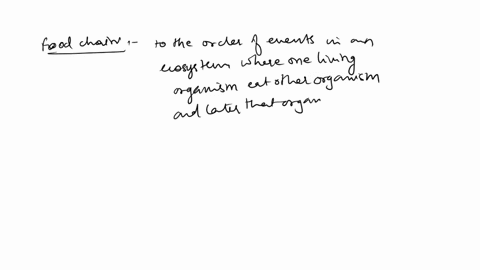 food chain :- to the order of events in an
ecosystem where one living
organism eat other organism
and later that organ